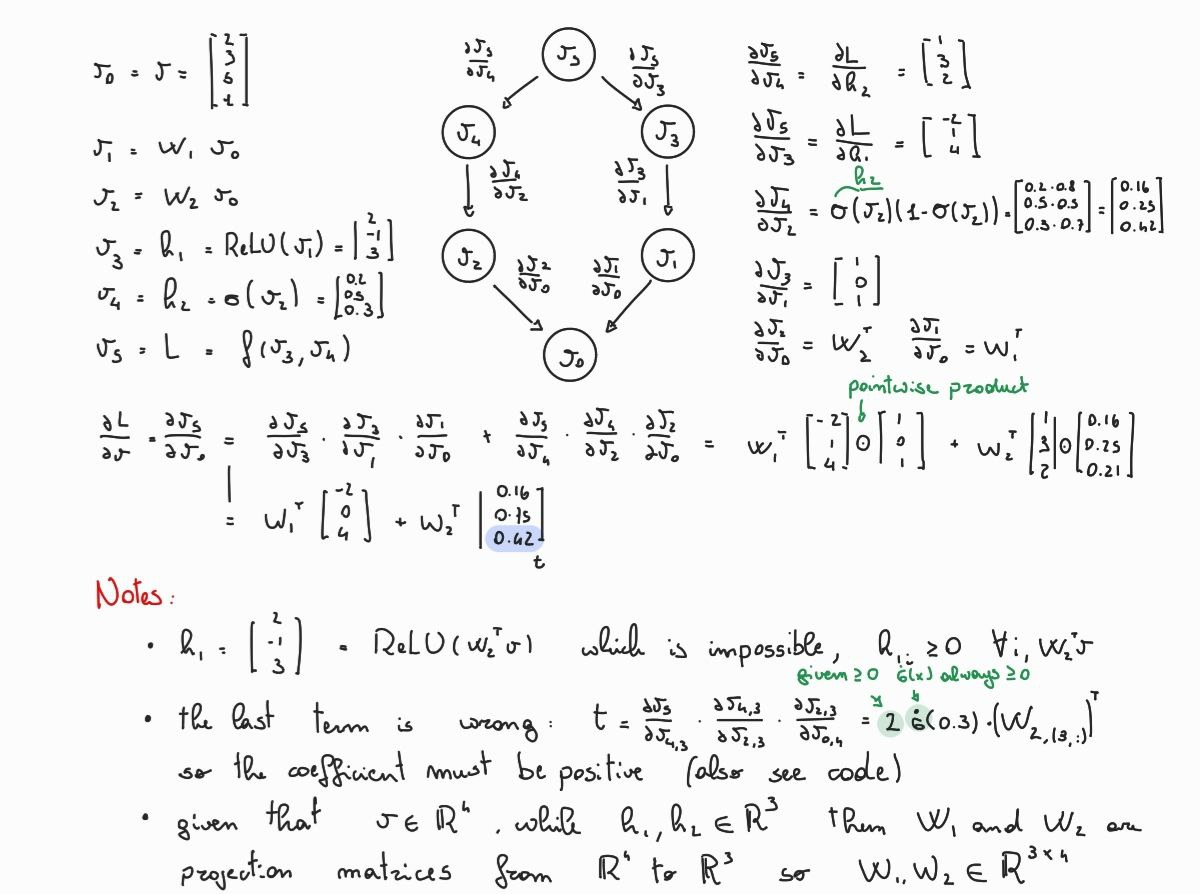 v₀ = v = [2 3 5 1]
v₁ = W₁ v₀
v₂ = W₂ v₀
v₃ = h₁ = ReLU(v₁) = [2 -1 3]
v₄ = h₂ = σ(v₂) = [0.2 0.5 0.3]
v₅ = L = f(v₃, v₄)
v₅
∂v₅/∂v₄ ∂v₅/∂v₃
v₄ v₃
∂v₄/∂v₂ ∂v₃/∂v₁
v₂ v₁
∂v₂/∂v₀ ∂v₁/∂v₀
v₀
∂v₅/∂v₄ = ∂L/∂h₂ = [1 3 2]
∂v₅/∂v₃ = ∂L/∂h₁ = [-2 1 4]
h₂
∂v₄/∂v₂ = σ(v₂)(1-σ(v₂)) = [0.2·0.8 0.5·0.5 0.3·0.7] = [0.16 0.25 0.42]
∂v₃/∂v₁ = [1 0 1]
∂v₂/∂v₀ = W₂ᵀ ∂v₁/∂v₀ = W₁ᵀ
pointwise product
∂L/∂v = ∂v₅/∂v₀ = ∂v₅/∂v₃ · ∂v₃/∂v₁ · ∂v₁/∂v₀ + ∂v₅/∂v₄ · ∂v₄/∂v₂ · ∂v₂/∂v₀ = W₁ᵀ [-2 1 4] ⊙ [1 0 1] + W₂ᵀ [1 3 2] ⊙ [0.16 0.25 0.21]
= W₁ᵀ [-2 0 4] + W₂ᵀ [0.16 0.75 0.42]
t
Notes:
• h₁ = [2 -1 3] = ReLU(W₂ᵀv) which is impossible, h₁,ᵢ ≥ 0 ∀i, W₂ᵀv
given ≥ 0 σ̇(x) always ≥ 0
• the last term is wrong: t = ∂v₅/∂v₄,₃ · ∂v₄,₃/∂v₂,₃ · ∂v₂,₃/∂v₀,₄ = 2 σ̇(0.3)·(W₂,(3,:))ᵀ
so the coefficient must be positive (also see code)
• given that v ∈ ℝ⁴, while h₁, h₂ ∈ ℝ³ then W₁ and W₂ are
projection matrices from ℝ⁴ to ℝ³ so W₁, W₂ ∈ ℝ³ˣ⁴